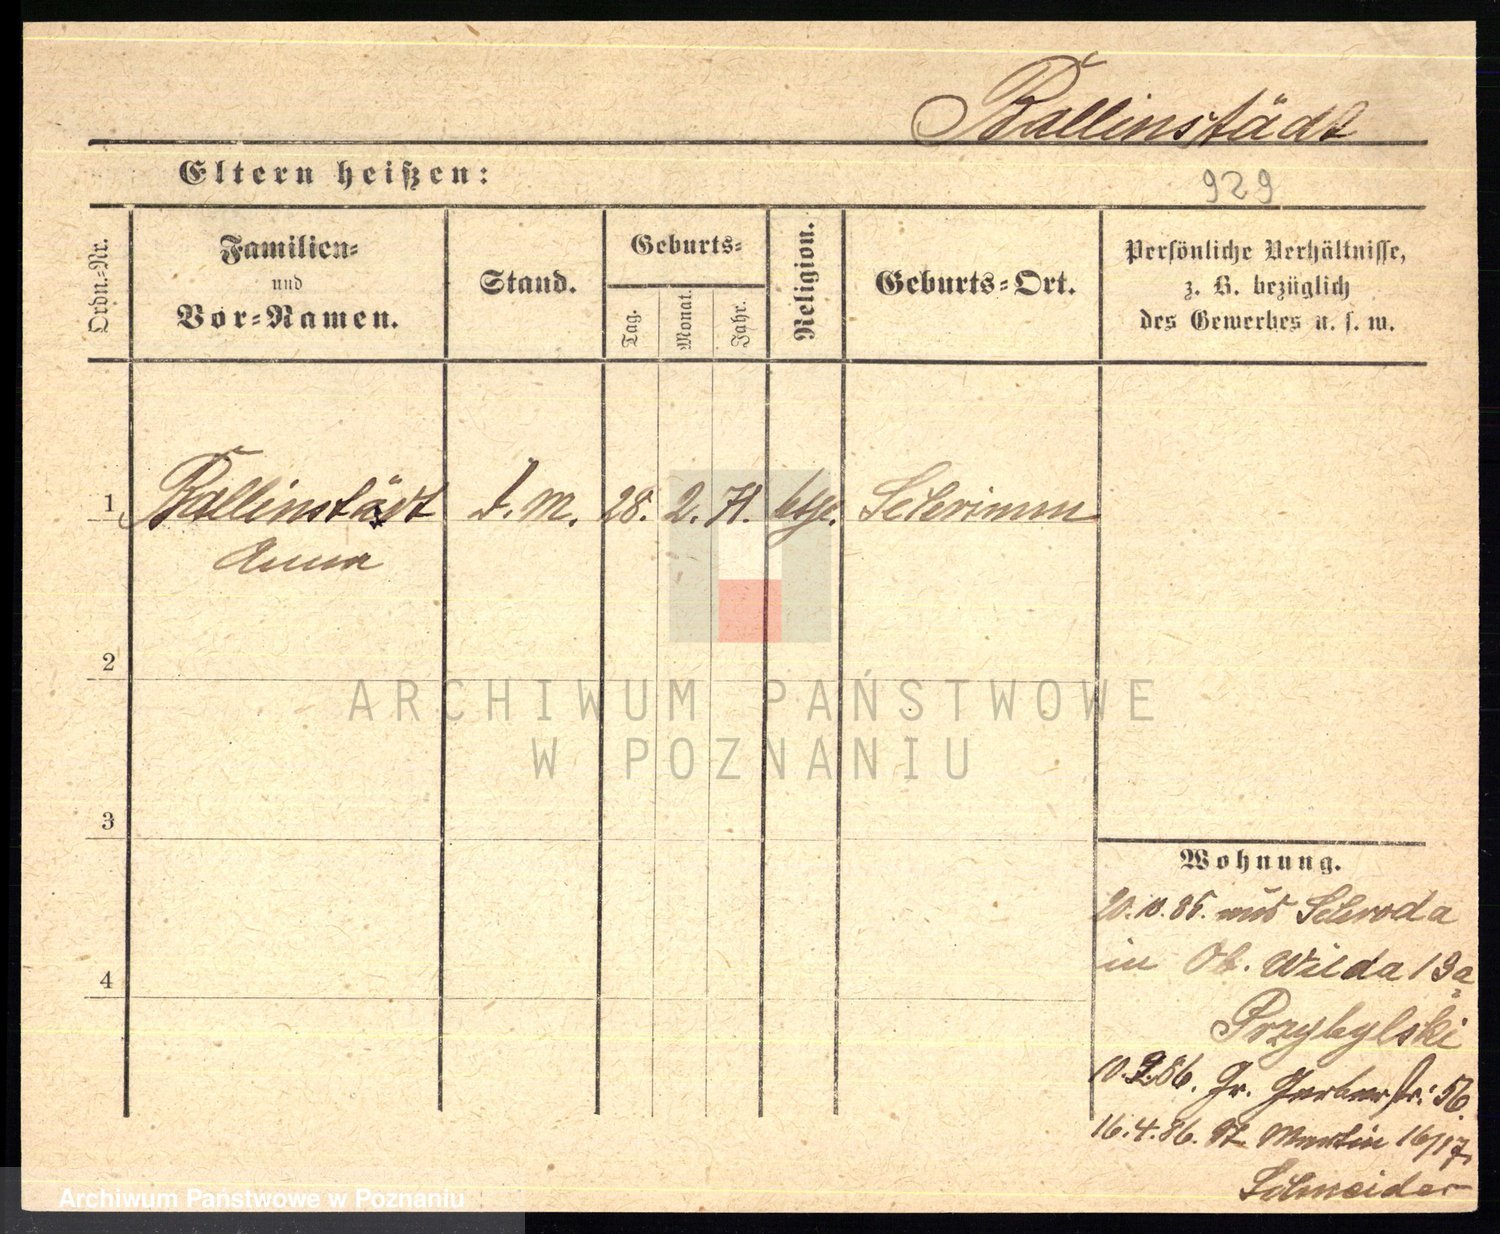 Ballinstädt
Eltern heißen:
929
Ordn.-Nr.
Familien-
und
Vor-Namen.
Stand.
Geburts-
Tag.
Monat.
Jahr.
Religion.
Geburts-Ort.
Persönliche Verhältnisse,
z. B. bezüglich
des Gewerbes u. s. w.
1 Ballinstädt D. M. 28. 2. 71. Schrimm
Anna
2
ARCHIWUM PAŃSTWOWE
W POZNANIU
3
Wohnung.
20.10.85. aus Schroda
in Ob. Wilda 13a
Przybylski
4
10.2.86. Gr. Gerberstr. 56.
16.4.86. St. Martin 16/17,
Schneider
Archiwum Państwowe w Poznaniu